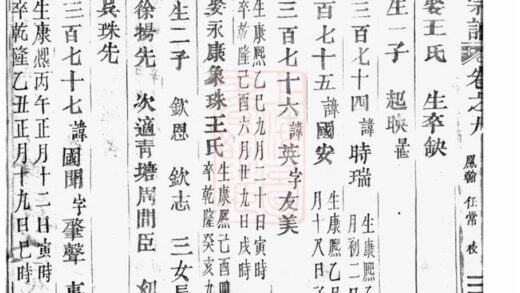 宗譜 卷之九 鳳翰 任常 校
娶王氏 生卒缺
生一子 起映
三百七十四 諱時瑞
生康熙乙
月初二
三百七十五 諱國安
生康熙乙
月十八日子
三百七十六 諱英字友美
生康熙乙巳九月二十日寅時
卒乾隆己酉六月廿九日戌時
娶永康象珠王氏
生康熙己酉
卒乾隆癸亥九
生二子 欽恩 欽志 三女長
徐揚先 次適青塘周間臣
吳珠先
三百七十七 諱國聞字肇聲
生康熙丙午正月十二日寅時
卒乾隆乙丑正月十九日巳時